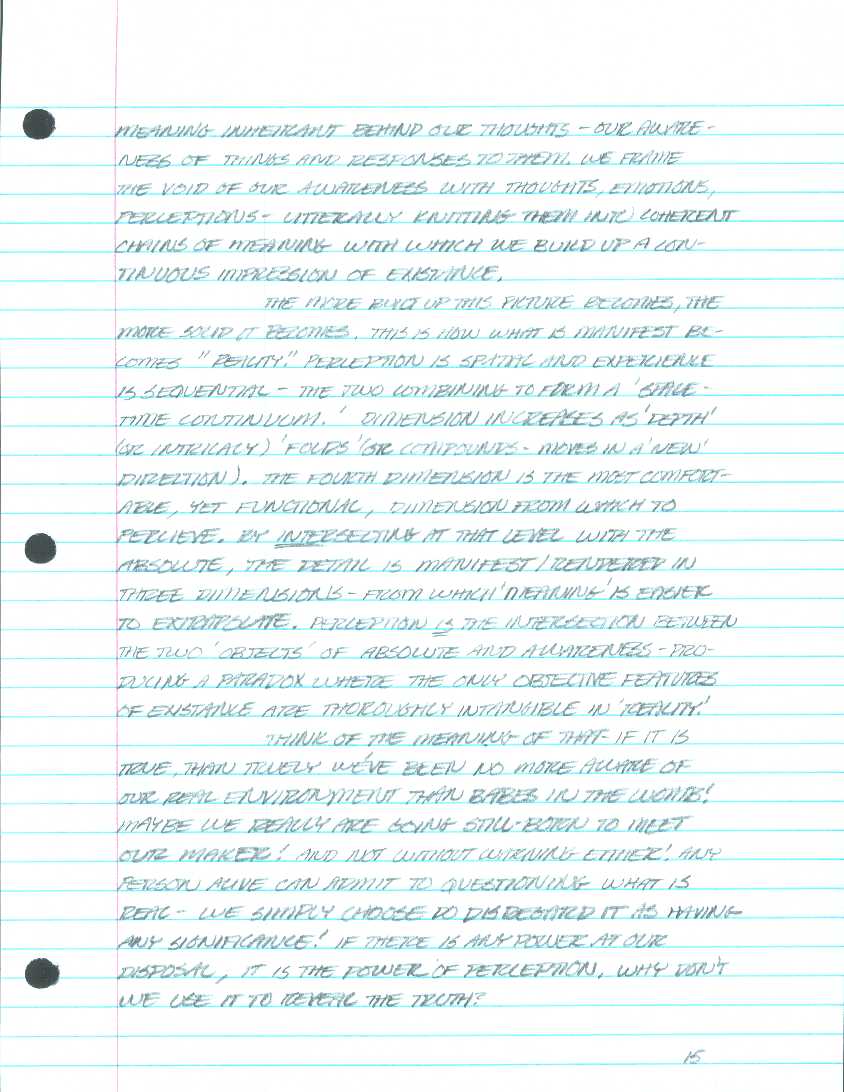 MEANING INHERANT BEHIND OUR THOUGHTS - OUR AWARE-
NESS OF THINGS AND RESPONSES TO THEM. WE FRAME
THE VOID OF OUR AWARENESS WITH THOUGHTS, EMOTIONS,
PERCEPTIONS - LITTERALLY KNITTING THEM INTO COHERENT
CHAINS OF MEANING WITH WHICH WE BUILD UP A CON-
TINUOUS IMPRESSION OF EXISTANCE.
THE MORE BUILT UP THIS PICTURE BECOMES, THE
MORE SOLID IT BECOMES. THIS IS HOW WHAT IS MANIFEST BE-
COMES "REALITY." PERCEPTION IS SPATIAL AND EXPERIENCE
IS SEQUENTIAL - THE TWO COMBINING TO FORM A 'SPACE-
TIME CONTINUUM.' DIMENSION INCREASES AS 'DEPTH'
(OR INTRICACY) 'FOLDS' (OR COMPOUNDS - MOVES IN A 'NEW'
DIRECTION). THE FOURTH DIMENSION IS THE MOST COMFORT-
ABLE, YET FUNCTIONAL, DIMENSION FROM WHICH TO
PERCIEVE. BY INTERSECTING AT THAT LEVEL WITH THE
ABSOLUTE, THE DETAIL IS MANIFEST / RENDERED IN
THREE DIMENSIONS - FROM WHICH 'MEANING' IS EASIER
TO EXTRAPOLATE. PERCEPTION IS THE INTERSECTION BETWEEN
THE TWO 'OBJECTS' OF ABSOLUTE AND AWARENESS - PRO-
DUCING A PARADOX WHERE THE ONLY OBJECTIVE FEATURES
OF EXISTANCE ARE THOROUGHLY INTANGIBLE IN 'REALITY!'
THINK OF THE MEANING OF THAT - IF IT IS
TRUE, THAN TRUELY WE'VE BEEN NO MORE AWARE OF
OUR REAL ENVIRONMENT THAN BABES IN THE WOMB!
MAYBE WE REALLY ARE GOING STILL-BORN TO MEET
OUR MAKER! AND NOT WITHOUT WARNING EITHER! ANY
PERSON ALIVE CAN ADMIT TO QUESTIONING WHAT IS
REAL - WE SIMPLY CHOOSE DO DISREGARD IT AS HAVING
ANY SIGNIFICANCE! IF THERE IS ANY POWER AT OUR
DISPOSAL, IT IS THE POWER OF PERCEPTION. WHY DON'T
WE USE IT TO REVEAL THE TRUTH?
15